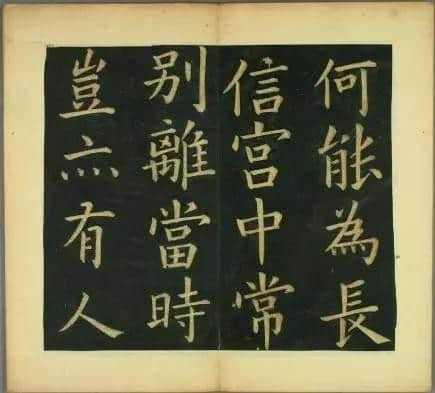 何能為長
信宮中常
別離當時
豈亦有人